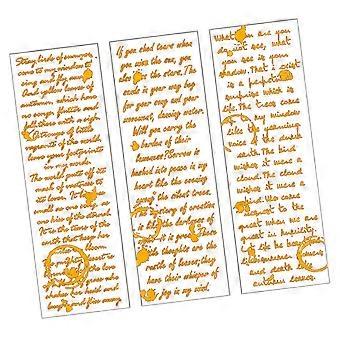 Stray birds of summer
come to my window to
sing and fly away
And yellow leaves of
autumn, which have
no songs, flutter and
fall there with a sigh.
O troupe of little
vagrants of the world,
leave your footprints
in my words.
The world puts off its
mask of vastness to
its lover. It becomes
small as one song, as
one kiss of the eternal.
It is the tears of the
earth that keep her
bloom.
is the love
grass who
shakes her head and
laughs and flies away.
If you shed tears when
you miss the sun, you
also miss the stars. The
sands in your way beg
for your song and your
movement, dancing water.
Will you carry the
burden of their
lameness? Sorrow is
hushed into peace in my
heart like the evening
among the silent trees.
mystery of creation
is like the darkness of
it is great.
thoughts are the
rustle of leaves; they
have their whisper of
joy in my mind.
What you are you
do not see, what
you see is your
shadow. That I exist
is a perpetual
surprise which is
life. The trees come
to my window
like the yearning
voice of the dumb
earth. The bird
wishes it were a
cloud. The cloud
wishes it were a
bird. We come
nearest to the
great when we are
great in humility.
Let life be beautiful
like summer flowers
and death like
autumn leaves.